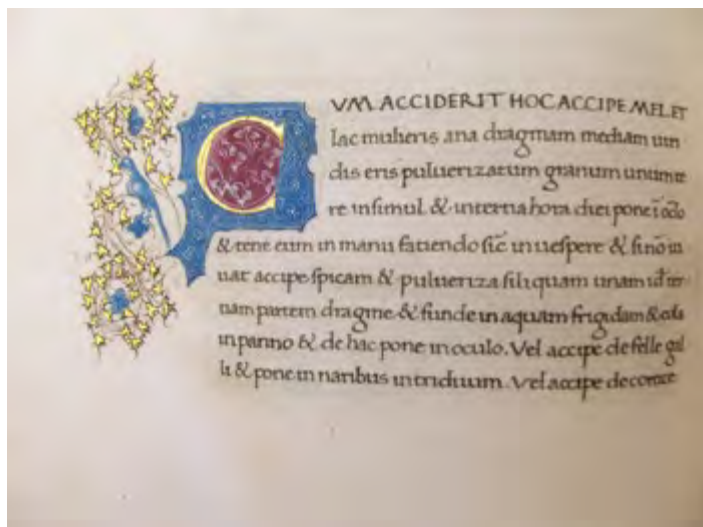 CVM ACCIDERIT HOC ACCIPE MEL ET
lac mulieris ana dragmam mediam uiri
dis eris puluerizatum granum unum te
re insimul & in tertia hora diei pone ī oc̄lo
& tene eum in manu fatiendo sic̄ in uespere & si nō iu
uat accipe spicam & pulueriza siliquam unam id̄ ter
nam partem dragme & funde in aquam frigidam & cola
in panno & de hac pone in oculo. Vel accipe de felle gal
li & pone in naribus in triduum. Vel accipe de cortice